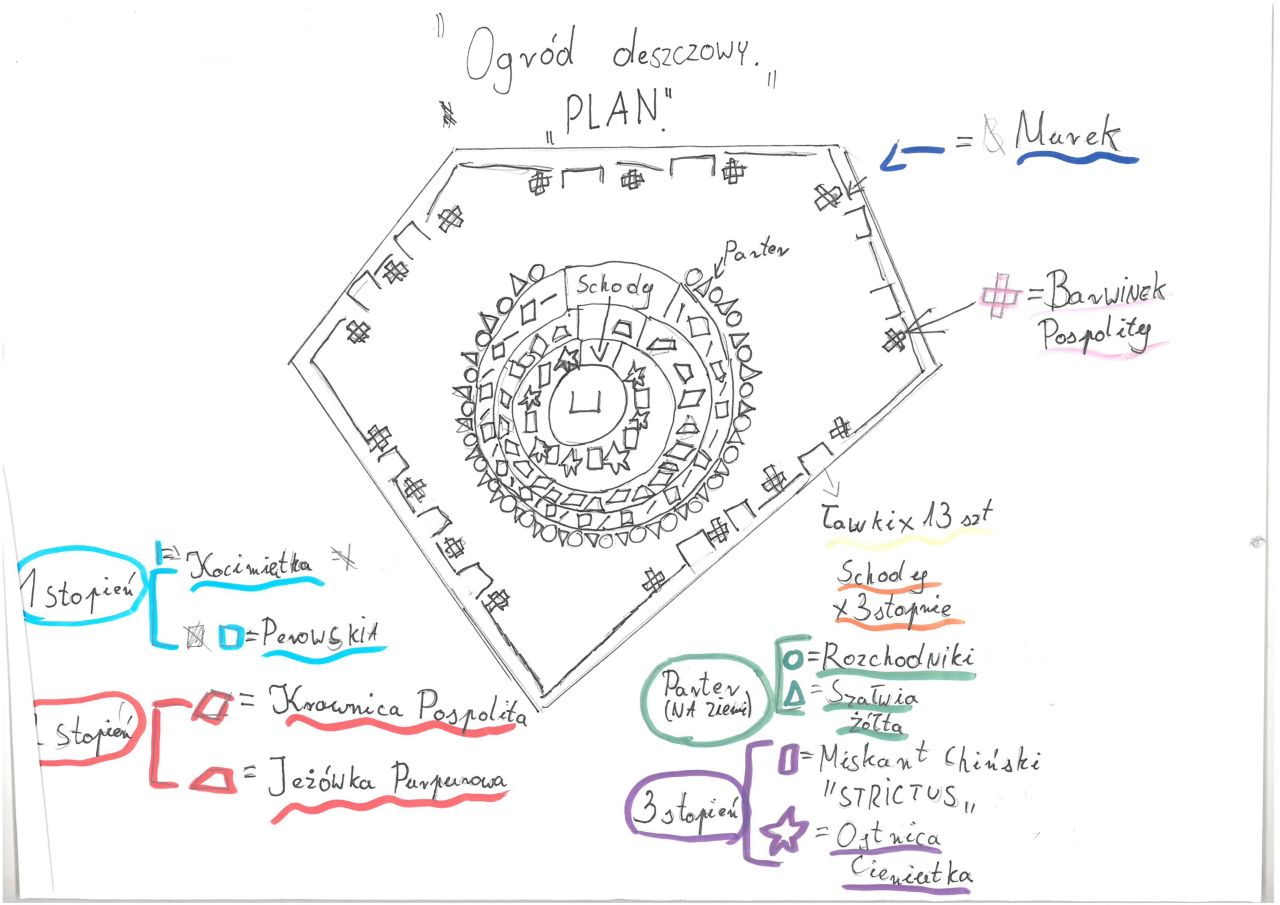 " Ogród deszczowy. "
"PLAN."
= Murek
Parter
Schody
= BARWINEK
Pospolity
Ławki x 13 szt
Schody
x 3 stopnie
1 stopień
= Kocimiętka
= PerowskiA
stopień
= Krwnica Pospolita
= Jeżówka Purpurowa
Parter
(NA ziemi)
= Rozchodniki
= Szałwia
żółta
3 stopień
= Miskant Chiński
"STRICTUS"
= Ostnica
Cieniutka